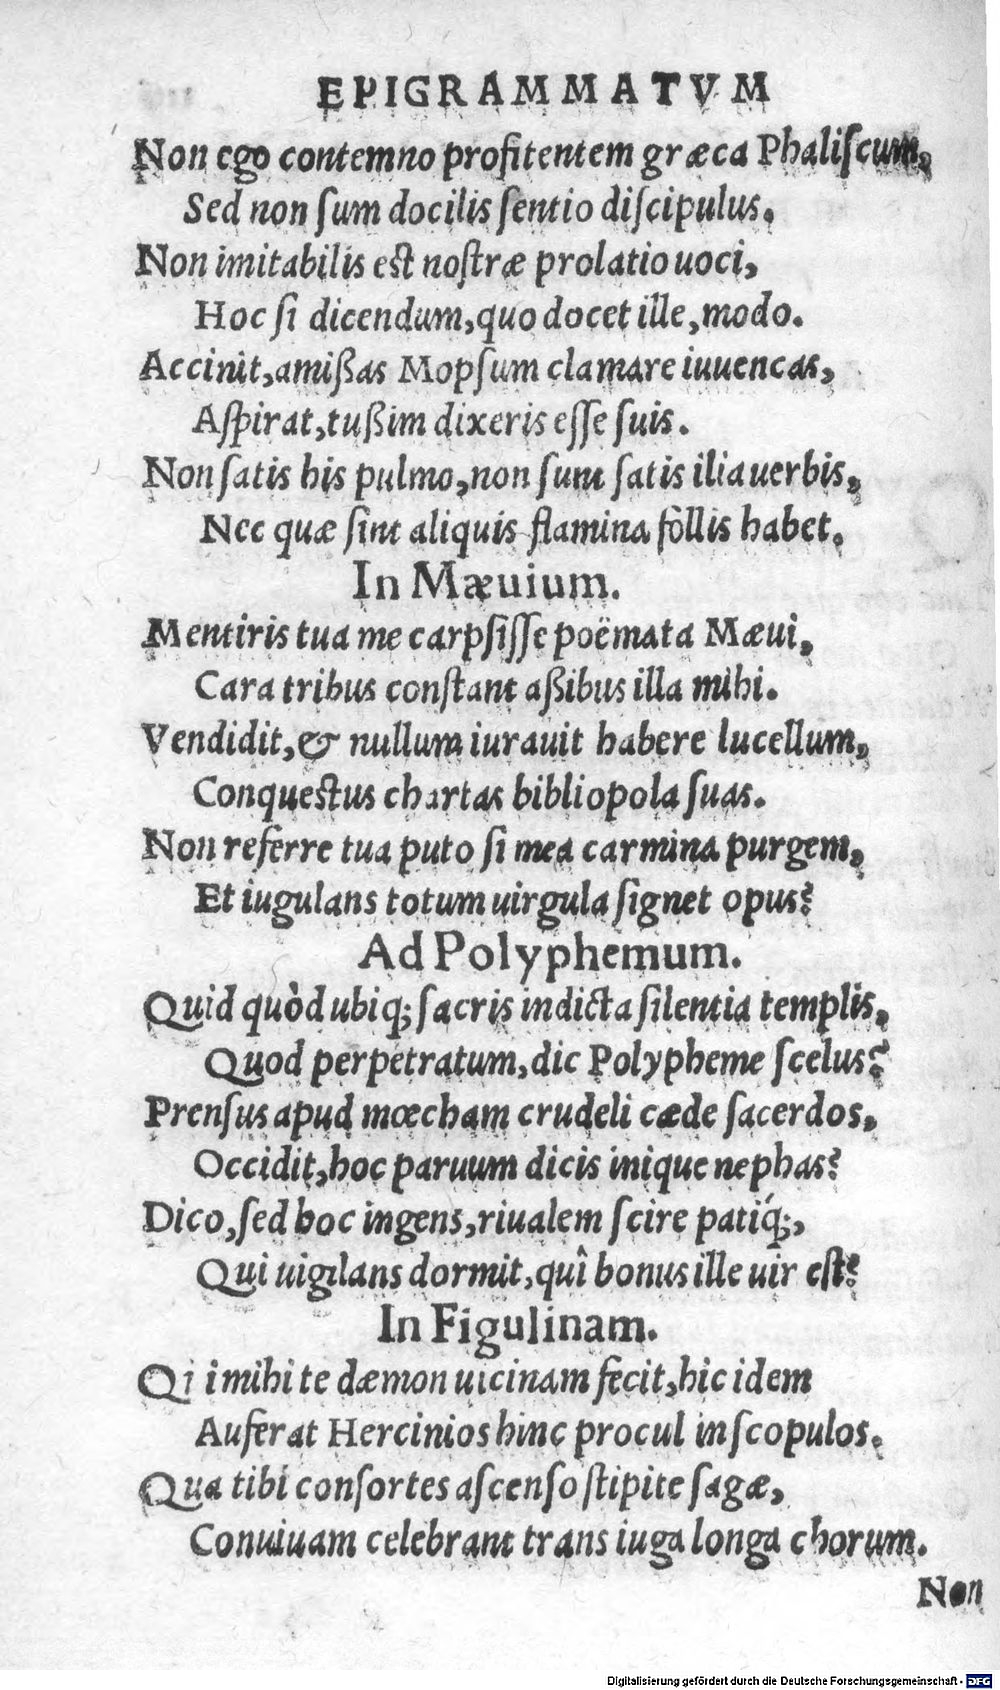 EPIGRAMMATVM
Non ego contemno profitentem græca Phaliſcum,
Sed non ſum docilis ſentio diſcipulus,
Non imitabilis est noſtræ prolatio uoci,
Hoc ſi dicendum, quo docet ille, modo.
Accinit, amißas Mopſum clamare iuuencas,
Aſpirat, tußim dixeris eſſe ſuis.
Non ſatis his pulmo, non ſunt ſatis ilia uerbis,
Nec quæ ſint aliquis flamina follis habet.
In Mæuium.
Mentiris tua me carpſiſſe poëmata Mæui,
Cara tribus conſtant aßibus illa mihi.
Vendidit, & nullum iurauit habere lucellum,
Conquestus chartas bibliopola ſuas.
Non referre tua puto ſi mea carmina purgem,
Et iugulans totum uirgula ſignet opus?
Ad Polyphemum.
Quid quòd ubiq; ſacris indicta ſilentia templis,
Quod perpetratum, dic Polypheme ſcelus?
Prenſus apud mœcham crudeli cæde ſacerdos,
Occidit, hoc paruum dicis inique nephas?
Dico, ſed hoc ingens, riualem ſcire patiq́;,
Qui uigilans dormit, quî bonus ille uir eſt?
In Figulinam.
Qi i mihi te dæmon uicinam fecit, hic idem
Auferat Hercinios hinc procul in ſcopulos.
Qua tibi conſortes aſcenſo ſtipite ſagæ,
Conuiuam celebrant trans iuga longa chorum.
Non
Digitalisierung gefördert durch die Deutsche Forschungsgemeinschaft - DFG